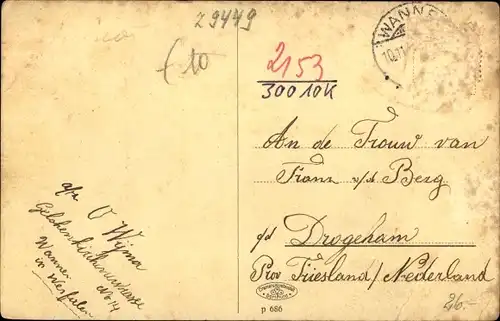 29449
f 10
2153
30010K
WANNE
10.11
An de Frouw van
Franz v/d Berg
p/d Drogeham
Prov Friesland/Nederland
a/z O Wijma
Gelsenkirchenerstrasse
No 14
Wannen
in Wesfalen
p 686
26.-